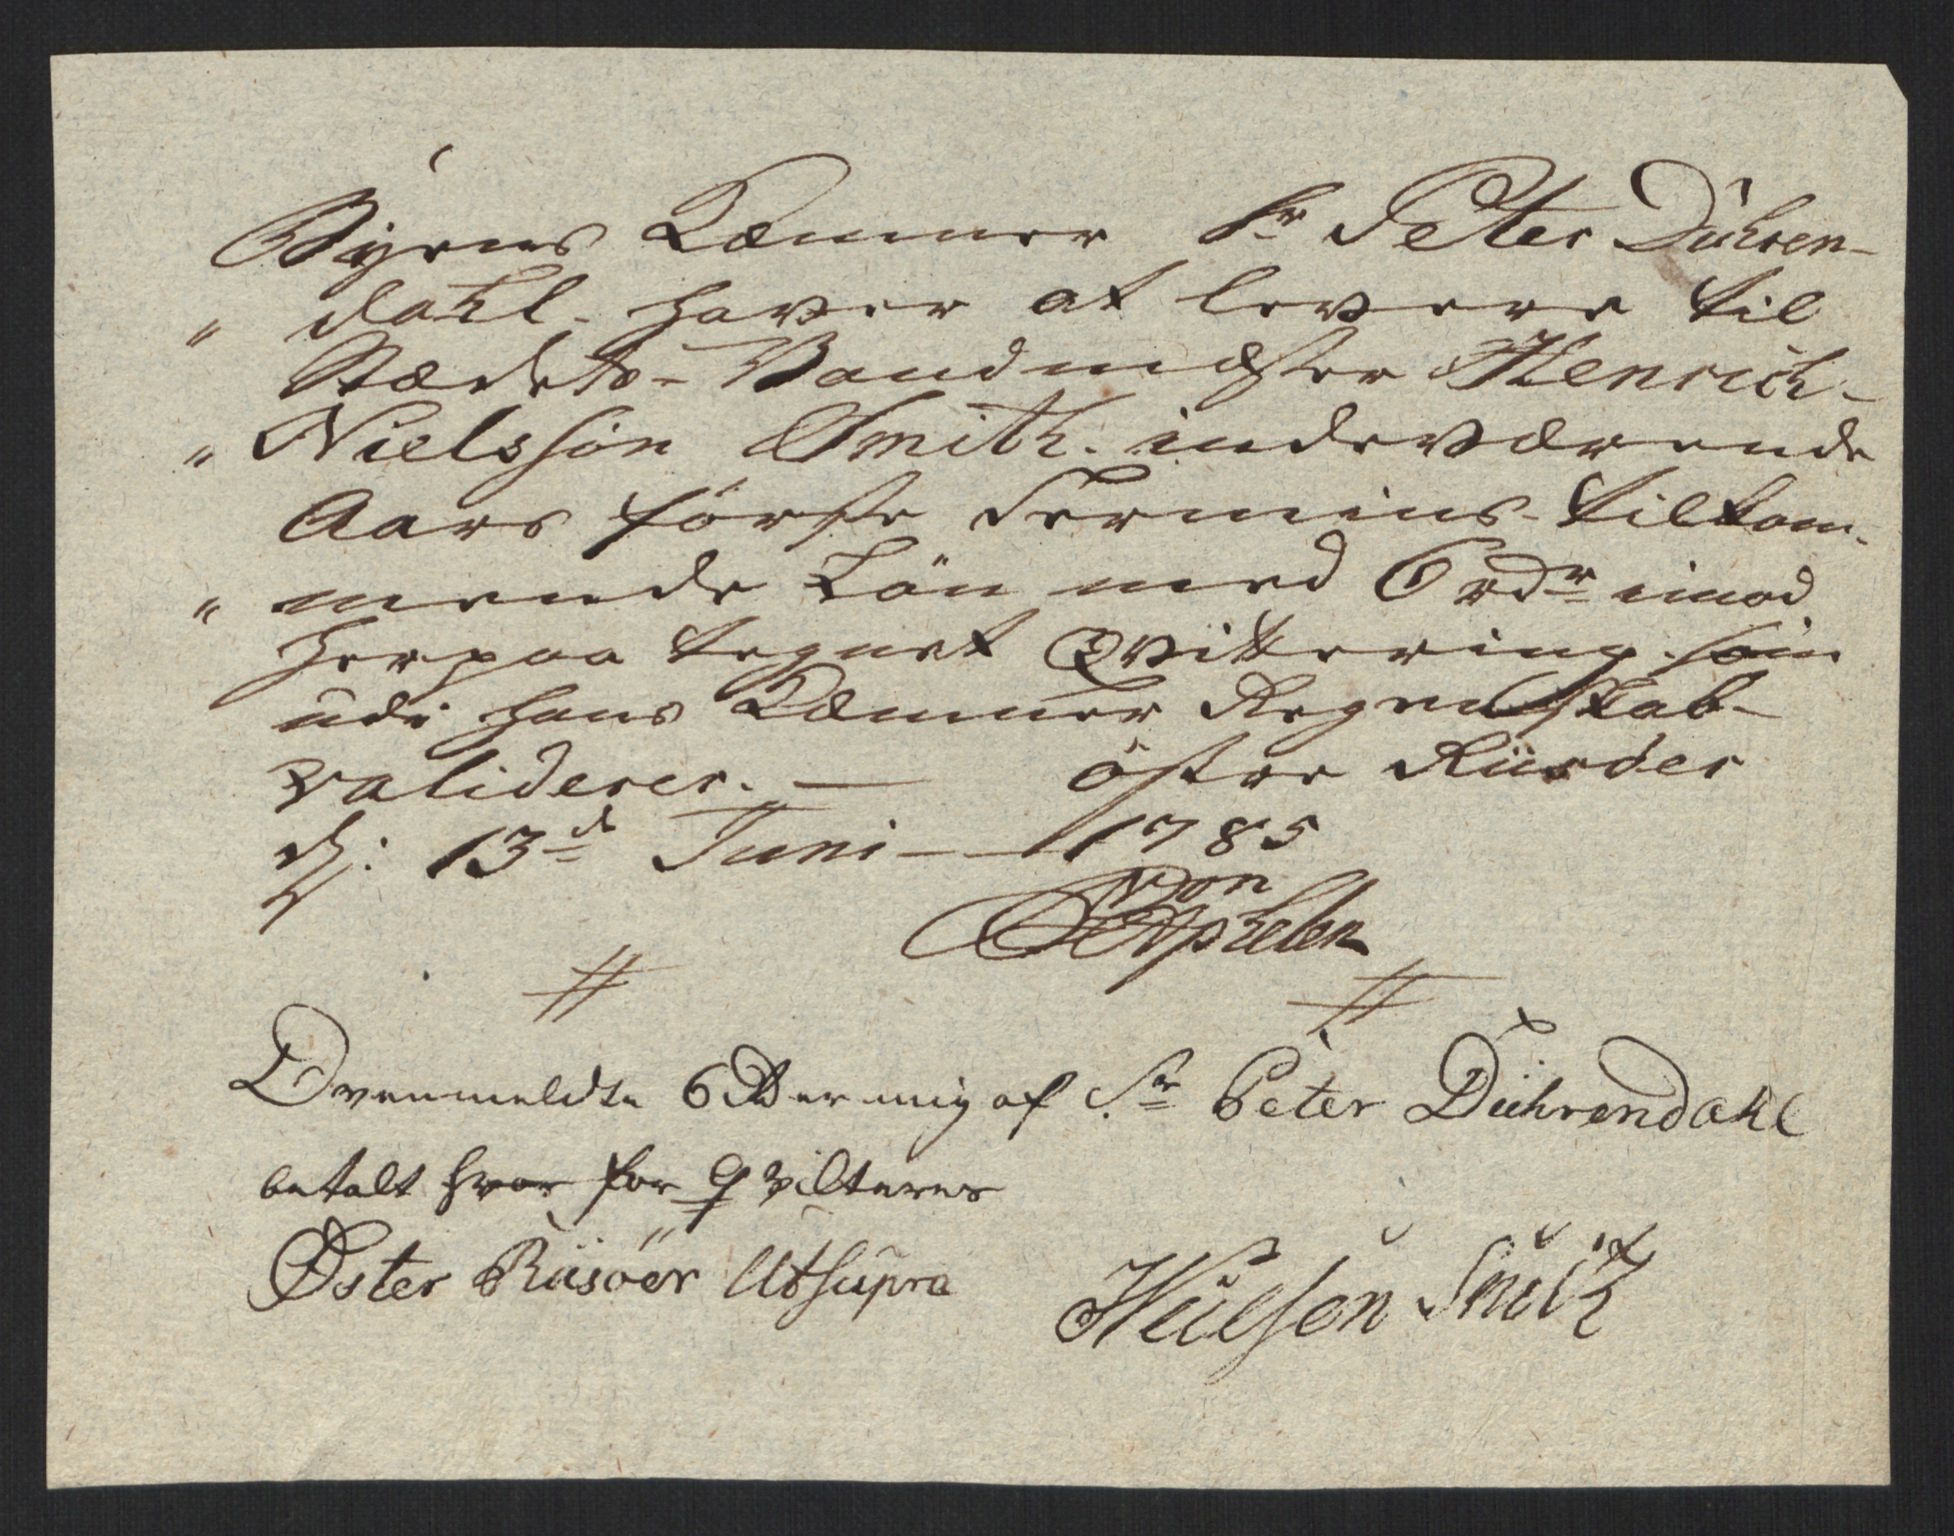 Byens Kæmner Sr Peter Dühren-
„ dahl. haver at levere til
Stædets- Vandmæster Henrich-
„ Nielssön Smith. indeværende
Aars förste Termins- tilkom-
„ mende Lön med 6 rdr imod
herpaa tegnet Qvittering. som
udi hans Kæmner Regnskab-
validerer. — östre Riisöer
d: 13d Juni — 1785
von Aphelen
Ovenmeldte 6 rd er mig af Sr Peter Dührendahl
betalt hvor for qvitteres
Øster Riisöer Utsupra
HNielsen Smith